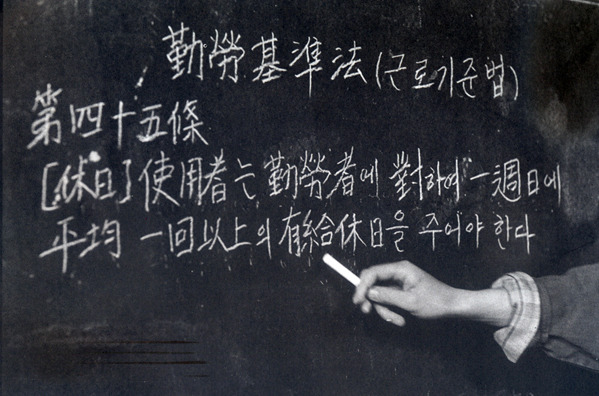 勤勞基準法(근로기준법)
第四十五條
[休日]使用者는 勤勞者에 對하여 一週日에
平均 一回以上의 有給休日을 주어야 한다